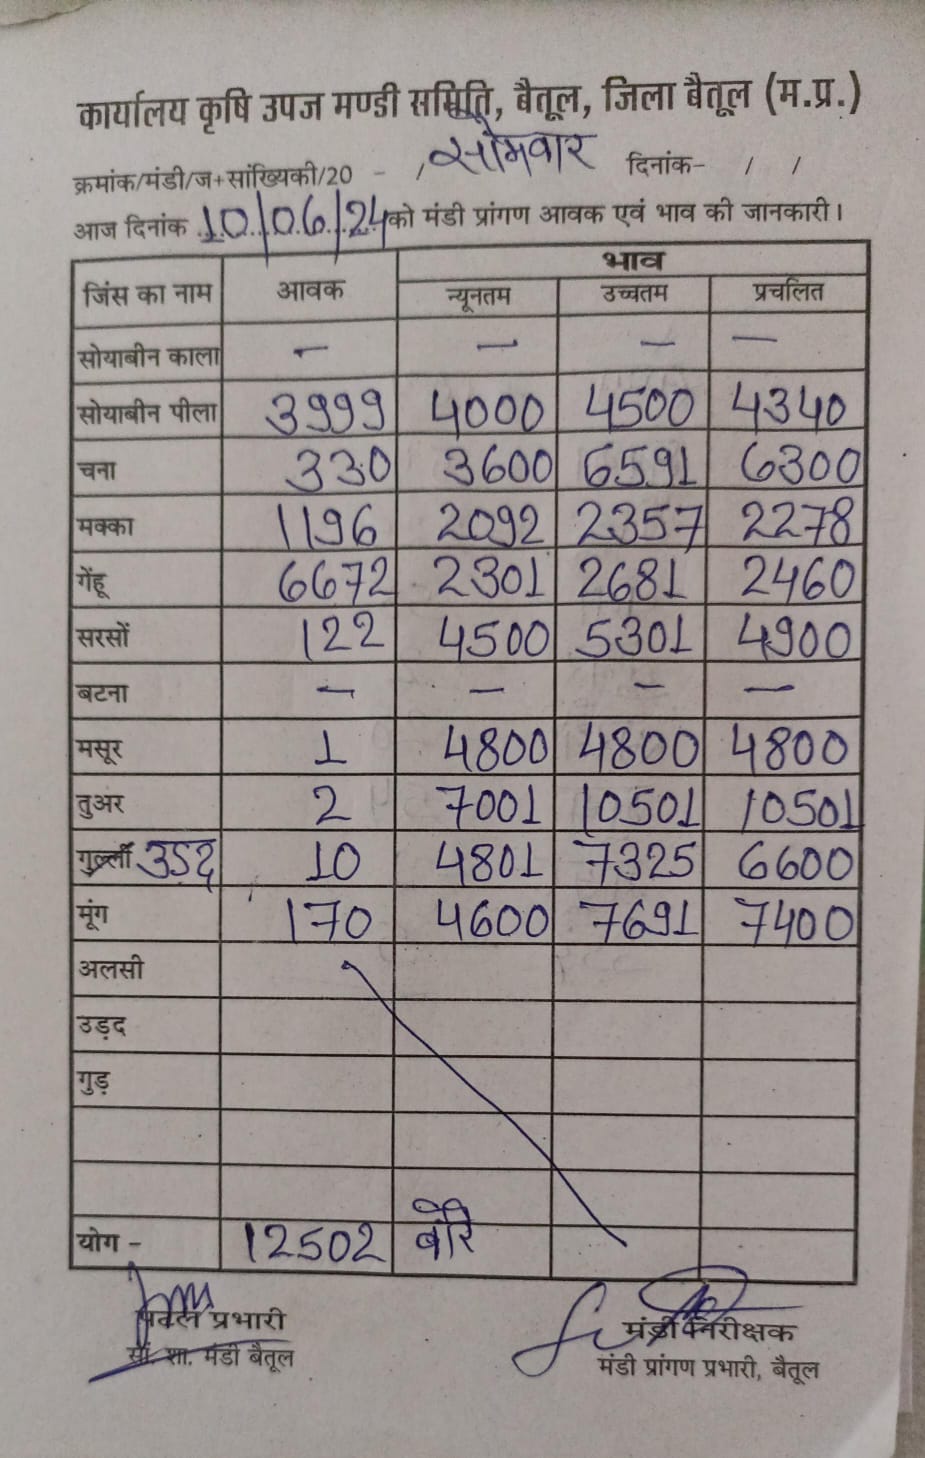 कार्यालय कृषि उपज मण्डी समिति, बैतूल, जिला बैतूल (म.प्र.)
क्रमांक/मंडी/ज+सांख्यिकी/20 - , सोमवार दिनांक- / /
आज दिनांक 10/06/24 को मंडी प्रांगण आवक एवं भाव की जानकारी।
जिंस का नाम आवक भाव
न्यूनतम उच्चतम प्रचलित
सोयाबीन काला — — — —
सोयाबीन पीला 3999 4000 4500 4340
चना 330 3600 6591 6300
मक्का 1196 2092 2357 2278
गेंहू 6672 2301 2681 2460
सरसों 122 4500 5301 4900
बटना — — — —
मसूर 1 4800 4800 4800
तुअर 2 7001 10501 10501
10 4801 7325 6600
मूंग 170 4600 7691 7400
अलसी
उड़द
गुड़
योग - 12502 बोरे
प्रभारी मंडी निरीक्षक
सां. शा. मंडी बैतूल मंडी प्रांगण प्रभारी, बैतूल